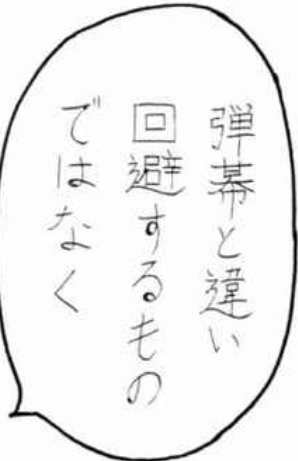 弾幕と違い
回避するもの
ではなく